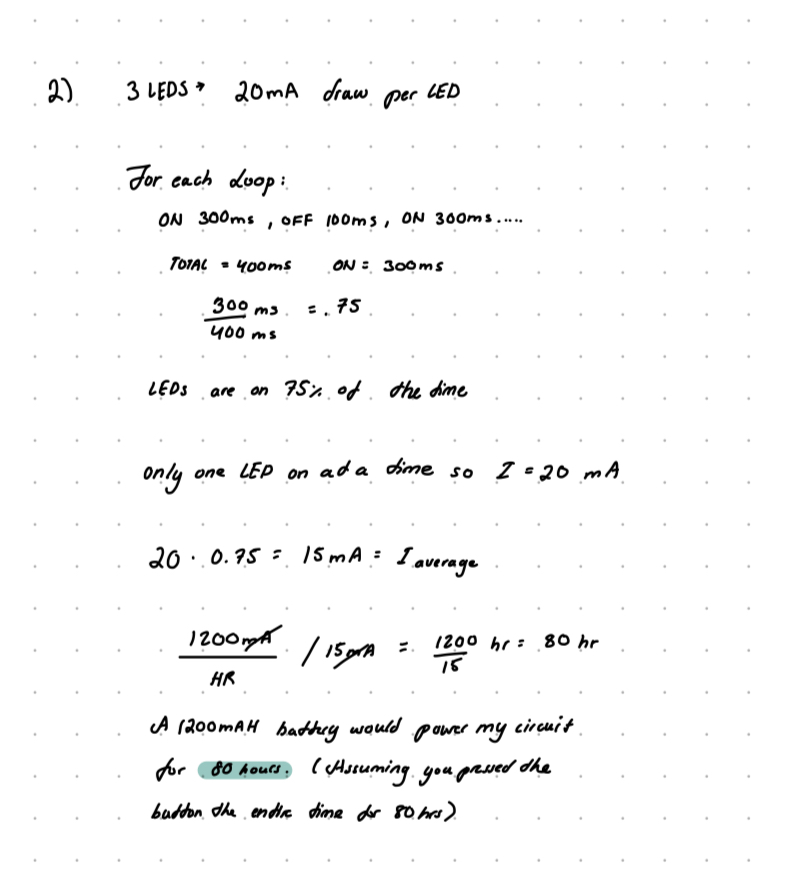 2) 3 LEDS → 20mA draw per LED
For each Loop:
ON 300ms, OFF 100ms, ON 300ms.....
TOTAL = 400ms ON = 300ms
300 ms = .75
400 ms
LEDs are on 75% of the time
only one LED on at a time so I = 20 mA
20 · 0.75 = 15mA = I average
1200mA / 15mA = 1200 hr = 80 hr
HR 15
A 1200mAH battery would power my circuit
for 80 hours. (Assuming you pressed the
button the entire time for 80 hrs)